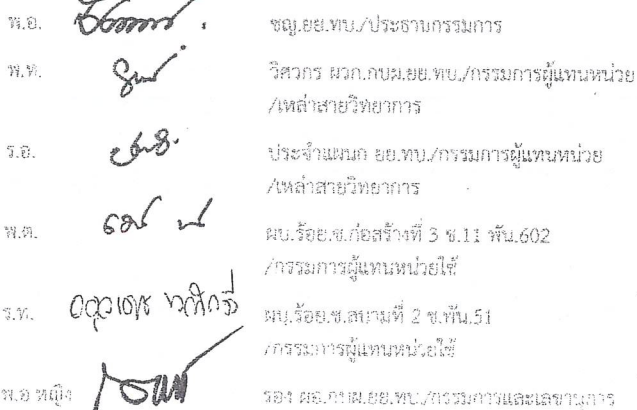 พ.อ. ชญ.ยย.ทบ./ประธานกรรมการ
พ.ท. วิศวกร ผวก.กบผ.ยย.ทบ./กรรมการผู้แทนหน่วย
/เหล่าสายวิทยาการ
ร.อ. ประจำแผนก ยย.ทบ./กรรมการผู้แทนหน่วย
/เหล่าสายวิทยาการ
พ.ต. ผบ.ร้อย.ช.ก่อสร้างที่ 3 ช.11 พัน.602
/กรรมการผู้แทนหน่วยใช้
ร.ท. ผบ.ร้อย.ช.สนามที่ 2 ช.พัน.51
/กรรมการผู้แทนหน่วยใช้
พ.อ.หญิง รอง ผอ.กบผ.ยย.ทบ./กรรมการและเลขานุการ